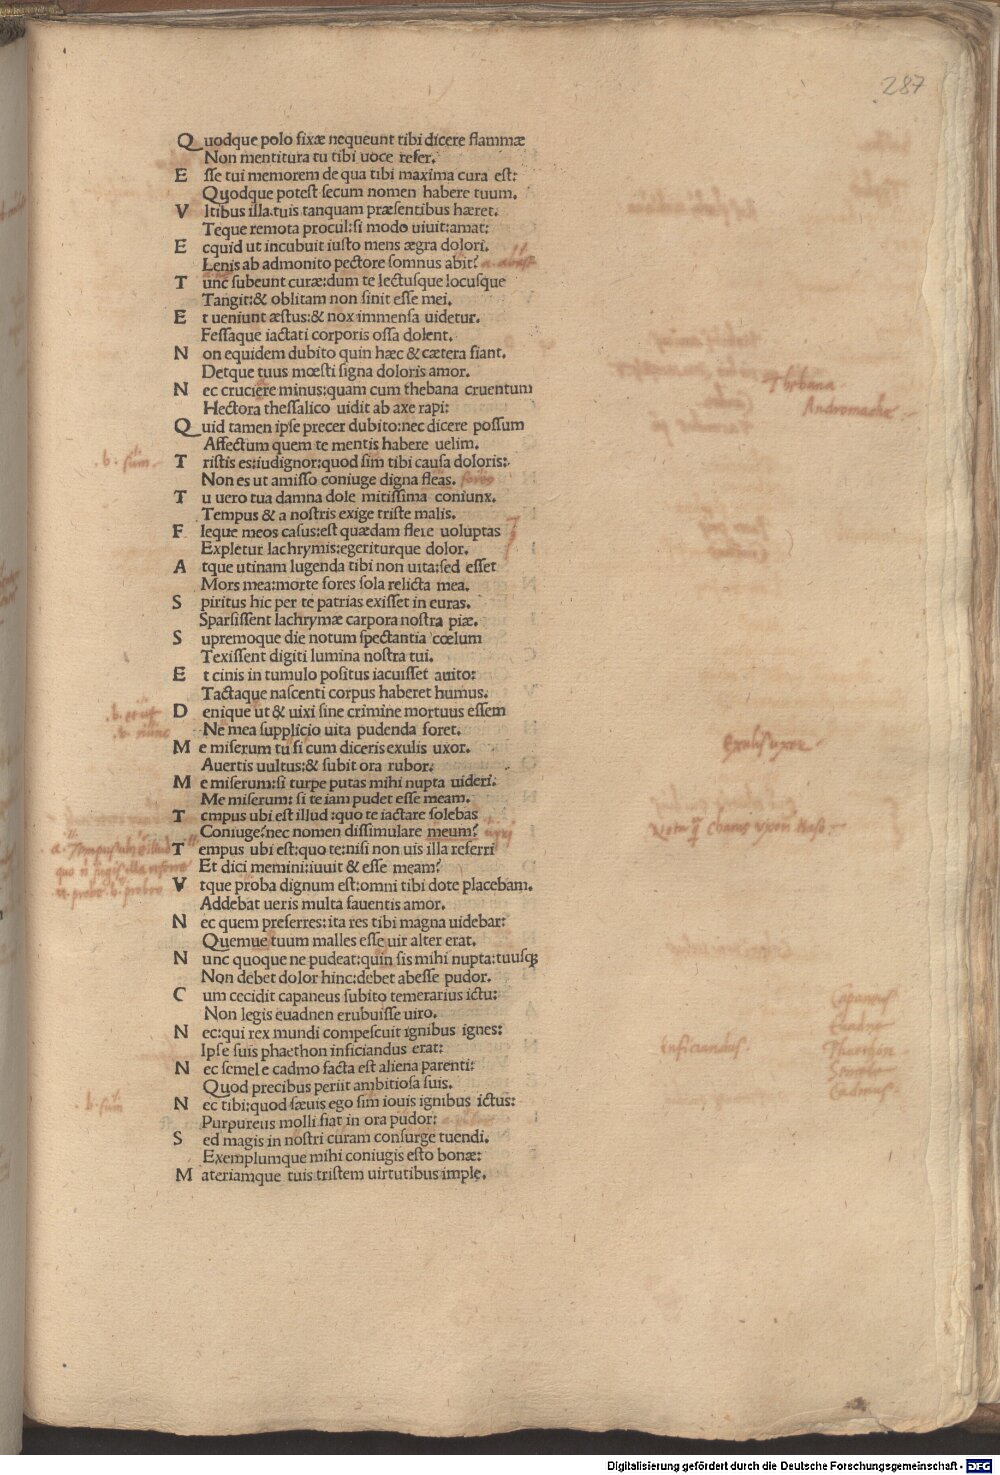 287
Quodque polo fixæ nequeunt tibi dicere flammæ
Non mentitura tu tibi uoce refer.
Esse tui memorem de qua tibi maxima cura est:
Quodque potest secum nomen habere tuum.
Vltibus illa.tuis tanquam præsentibus hæret.
Teque remota procul:si modo uiuit:amat:
Ecquid ut incubuit iusto mens ægra dolori.
Lenis ab admonito pectore somnus abit?
Tunc subeunt curæ:dum te lectusque locusque
Tangit:& oblitam non sinit esse mei.
Et ueniunt æstus:& nox immensa uidetur.
Fessaque iactati corporis ossa dolent.
Non equidem dubito quin hæc & cætera fiant.
Detque tuus mœsti signa doloris amor.
Nec cruciere minus:quam cum thebana cruentum
Thebana
Hectora thessalico uidit ab axe rapi:
Andromache
Quid tamen ipse precer dubito:nec dicere possum
Affectum quem te mentis habere uelim.
.b. sum.
Tristis es:iudignor:quod sim tibi causa doloris:
Non es ut amisso coniuge digna fleas.
Tu uero tua damna dole mitissima coniunx.
Tempus & a nostris exige triste malis.
Fleque meos casus:est quædam flere uoluptas
Expletur lachrymis:egeriturque dolor.
Atque utinam lugenda tibi non uita:sed esset
Mors mea:morte fores sola relicta mea.
Spiritus hic per te patrias exisset in euras.
Sparsissent lachrymæ carpora nostra piæ.
Supremoque die notum spectantia cœlum
Texissent digiti lumina nostra tui.
Et cinis in tumulo positus iacuisset auito:
Tactaque nascenti corpus haberet humus.
Denique ut & uixi sine crimine mortuus essem
.b. nunc
Ne mea supplicio uita pudenda foret.
Me miserum tu si cum diceris exulis uxor.
exulis uxor
Auertis uultus:& subit ora rubor.
Me miserum:si turpe putas mihi nupta uideri.
Me miserum: si te iam pudet esse meam.
Tcmpus ubi est illud :quo te iactare solebas
Coniuge?nec nomen dissimulare meum?
Tempus ubi est:quo te:nisi non uis illa referri
Et dici memini:iuuit & esse meam?
Vtque proba dignum est:omni tibi dote placebam.
Addebat ueris multa fauentis amor.
Nec quem preferres:ita res tibi magna uidebar:
Quemue tuum malles esse uir alter erat.
Nunc quoque ne pudeat:quin sis mihi nupta:tuusq;
Non debet dolor hinc:debet abesse pudor.
Cum cecidit capaneus subito temerarius ictu:
Capaneus
Non legis euadnen erubuisse uiro.
Euadne
Nec:qui rex mundi compescuit ignibus ignes:
Ipse suis phaethon inficiandus erat:
Inficiandus.
Phaethon
Nec semele cadmo facta est aliena parenti:
Semele
Quod precibus periit ambitiosa suis.
Cadmus.
Nec tibi:quod sæuis ego sim iouis ignibus ictus:
.b. sum
Purpureus molli fiat in ora pudor:
Sed magis in nostri curam consurge tuendi.
Exemplumque mihi coniugis esto bonæ:
Materiamque tuis tristem uirtutibus imple.
Digitalisierung gefördert durch die Deutsche Forschungsgemeinschaft - DFG